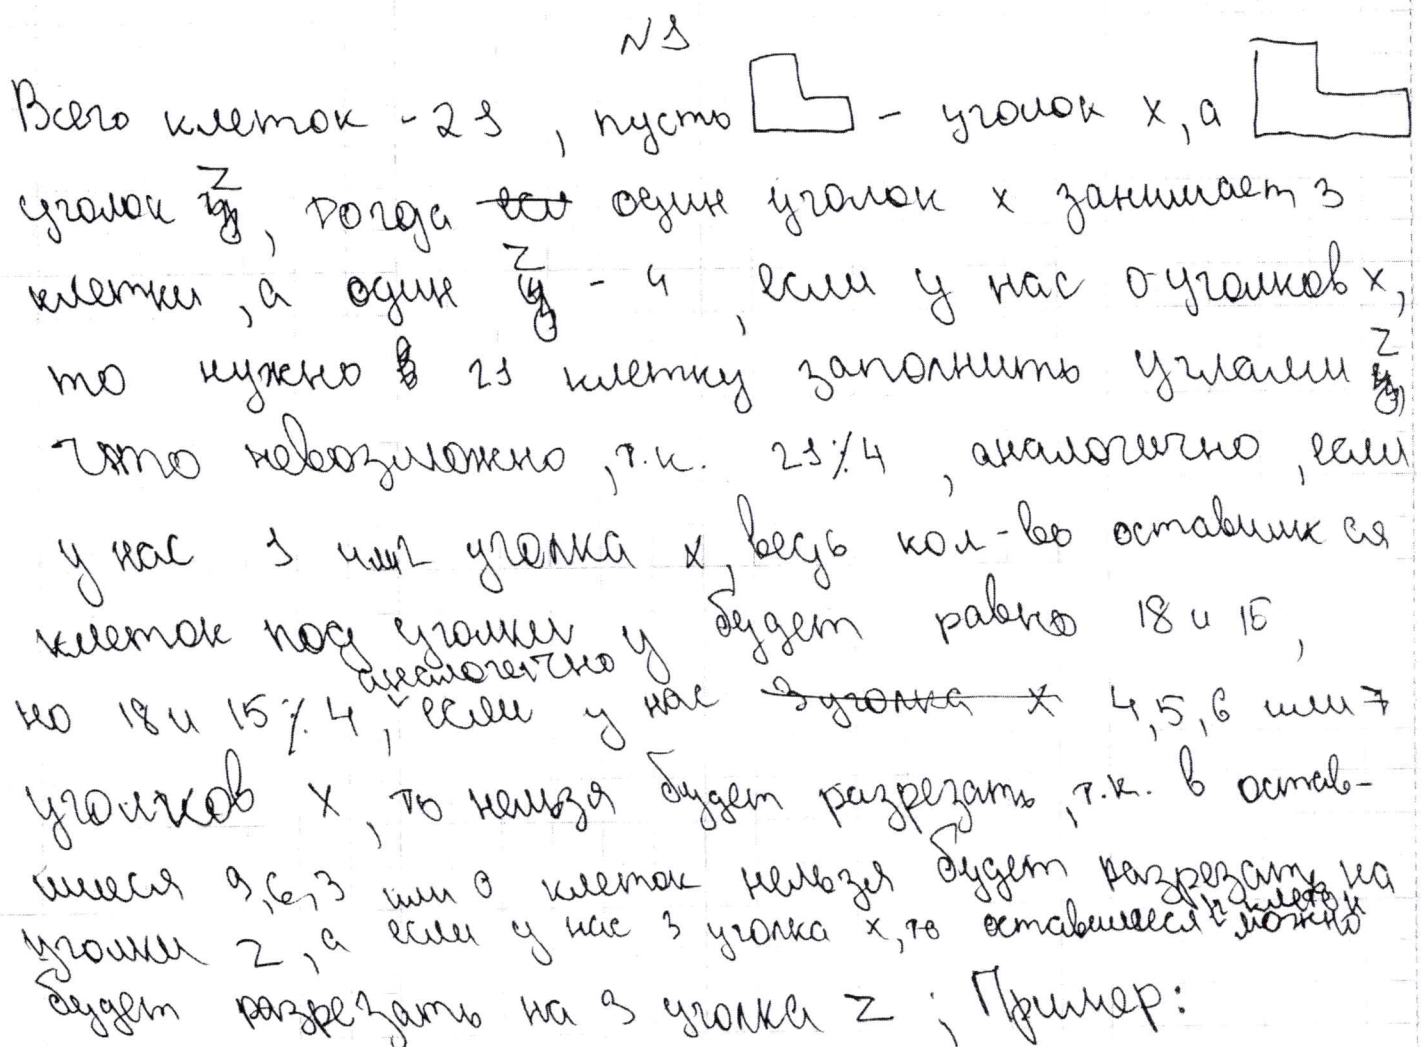 N1
Всего клеток - 21, пусть - уголок x, а
уголок z, тогда один уголок x занимает 3
клетки, а один z - 4, если у нас 0 уголков x,
то нужно 21 клетку заполнить углами z,
что невозможно, т.к. 21 ⁒ 4, аналогично, если
у нас 1 или 2 уголка x, ведь кол-во оставшихся
клеток под уголки y будет равно 18 и 15,
но 18 и 15 ⁒ 4, аналогично если у нас 4, 5, 6 или 7
уголков x, то нельзя будет разрезать, т.к. в остав-
шиеся 9, 6, 3 или 0 клеток нельзя будет разрезать на
уголки z, а если у нас 3 уголка x, то оставшиеся клетки можно
будет разрезать на 3 уголка z; Пример: